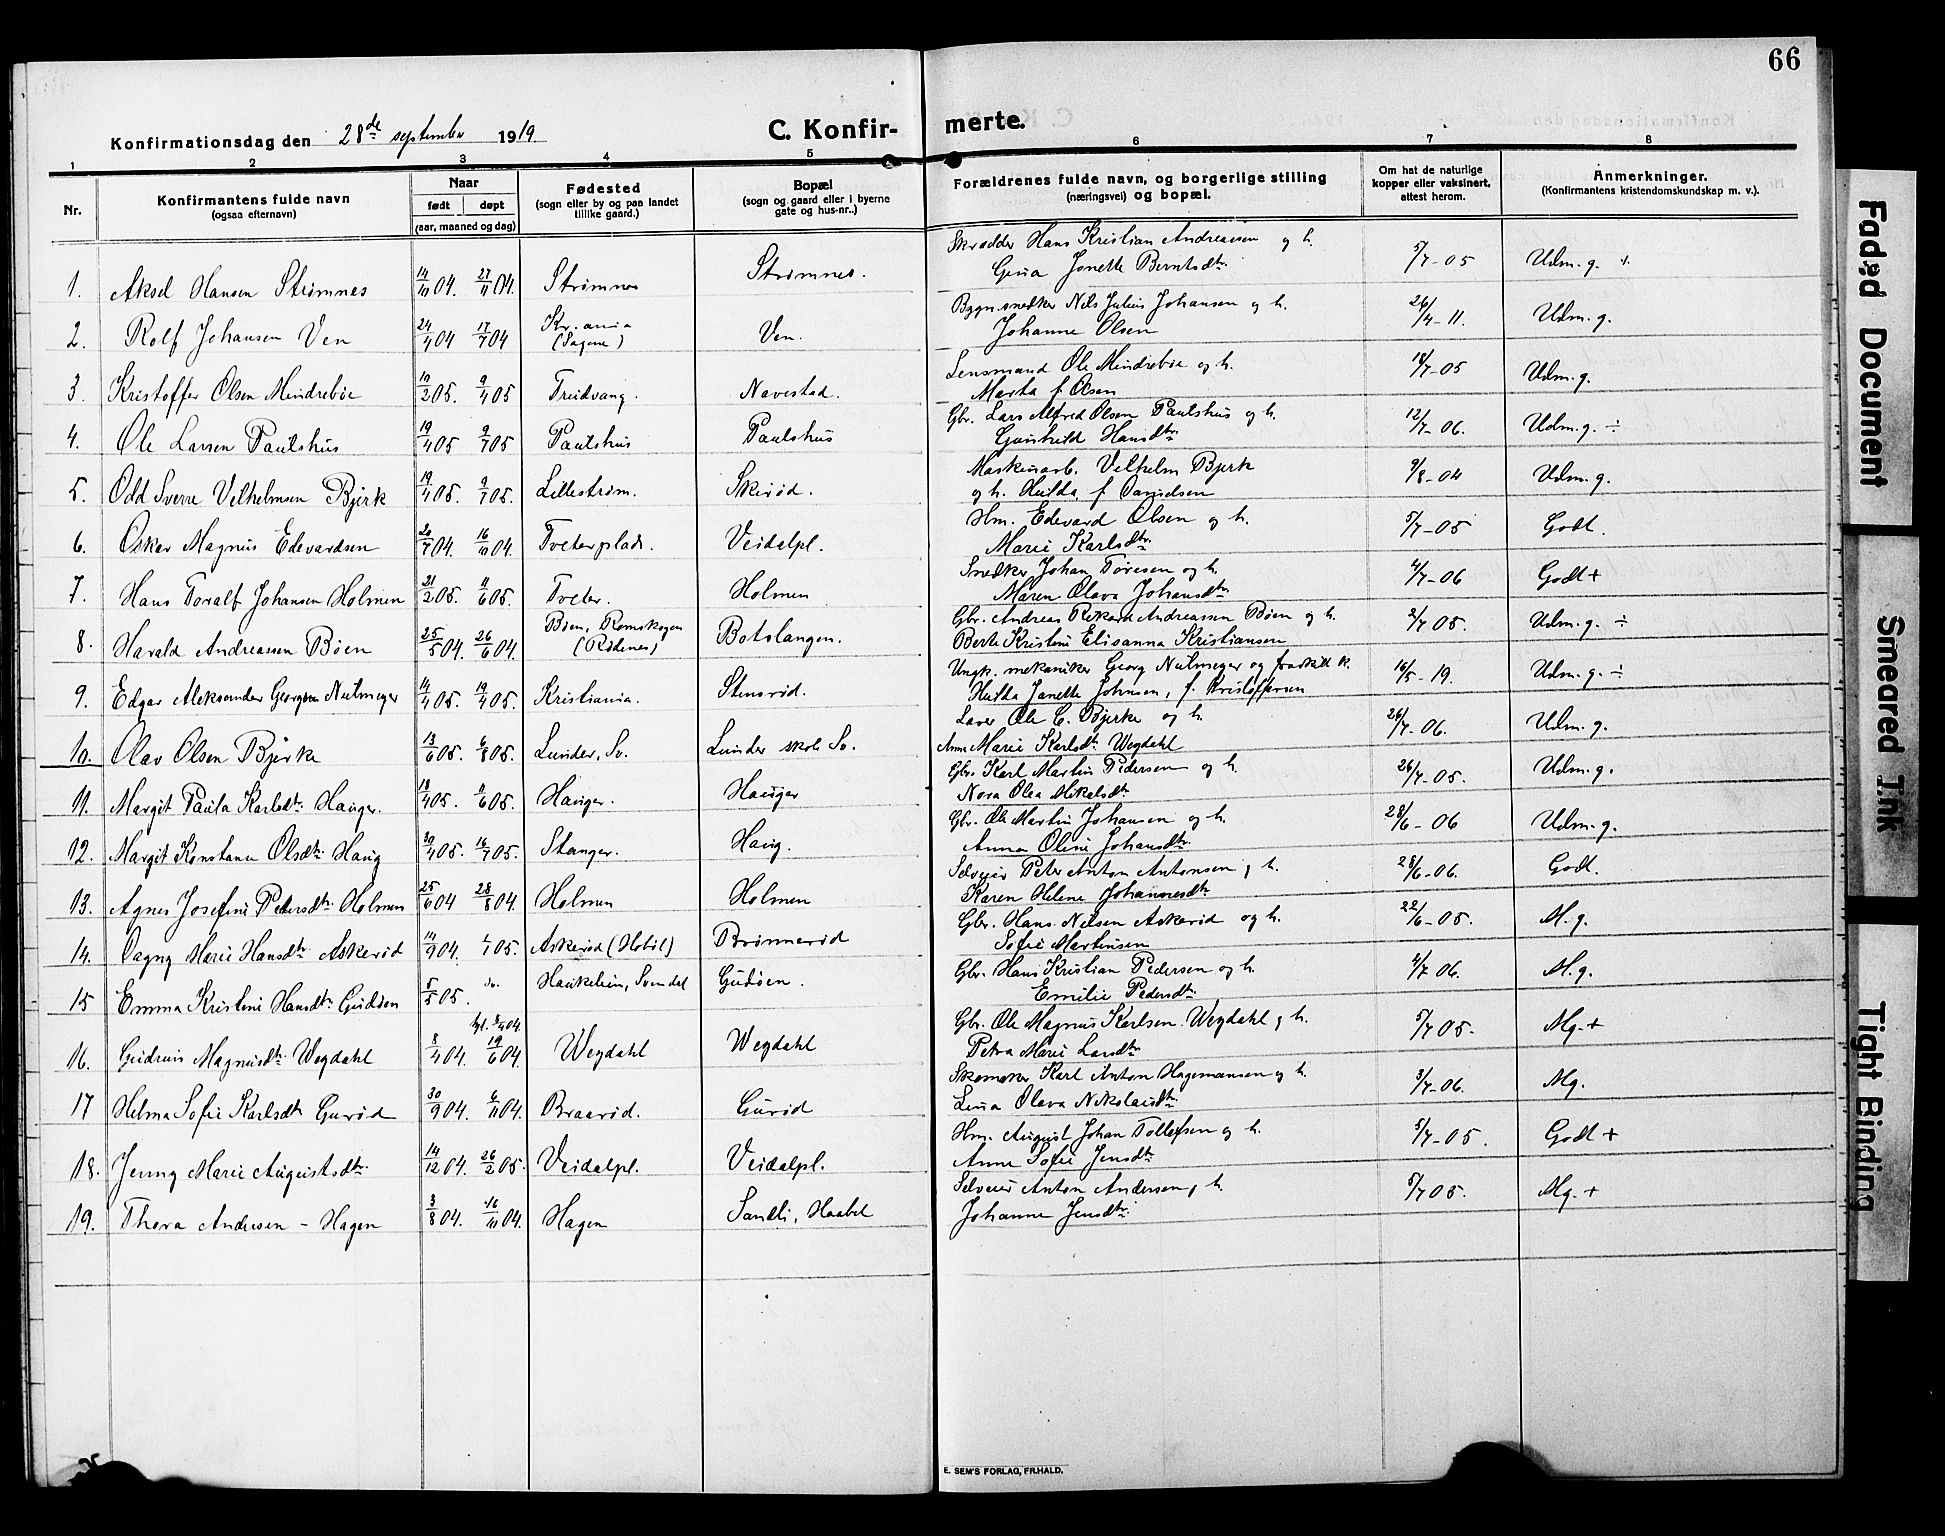 66
Konfirmationsdag den 28de september 1919
C. Konfir-
merte.
1 2 3 4 5 6 7 8
Nr.
Konfirmantens fulde navn
(ogsaa efternavn)
Naar
født døpt
(aar, maaned og dag)
Fødested
(sogn eller by og paa landet
tillike gaard.)
Bopæl
(sogn og gaard eller i byerne
gate og hus-nr..)
Forældrenes fulde navn, og borgerlige stilling
(næringsvei) og bopæl.
Om hat de naturlige
kopper eller vaksinert,
attest herom.
Anmerkninger.
(Konfirmantens kristendomskundskap m. v.).
Skrædder Hans Kristian Andreassen og h.
1. Aksel Hansen Strømnes 14/10 04. 27/11 04. Strømnes Strømnes. Gina Jonette Berntsdtr. 5/7-05 Udm. g. +
Bygn.snedker Nils Julius Johansen og h.
2. Rolf Johansen Ven 24/4 04 17/7 04 Kr.ania (Sagene) Ven. Johanne Olsen 26/4-11. Udm. g.
Lensmand Ole Mindrebøe og h.
3. Kristoffer Olsen Mindrebøe 10/2 05. 9/4 05 Freidvang. Navestad. Marta f. Olsen 18/7-05 Udm. g.
Gbr. Lars Alfred Olsen Paulshus og h.
4. Ole Larsen Paulshus 19/4 05 9/7 05 Paulshus Paulshus Gunhild Hansdtr. 12/7-06. Udm. g. ÷
Maskinarb. Vilhelm Bjerk
5. Odd Sverre Vilhelmsen Bjerk 19/4 05. 9/7 05. Lillestrøm. Skerød. og h. Hulda f. Danielsen 9/8-04 Udm. g.
Hm. Edevard Olsen og h.
6. Oskar Magnus Edevardsen 20/7 04. 16/10 04. Tveterplads. Veidalpl. Marie Karlsdtr. 5/7-05 Godt.
Snedker Johan Toresen og h.
7. Hans Toralf Johansen Holmen 21/2 05. 11/6 05. Tveter. Holmen Maren Olava Johansdtr. 4/7-06 Godt +
Gbr. Andreas Rikard Andreassen Bøen og h.
8. Harald Andreassen Bøen 25/5 04. 26/6 04. Bøen, Rømskogen (Rødenes) Botslangen. Berte Kristine Elisanna Kristiansen 3/7 05. Udm. g. ÷
Ungk. mekaniker Georg Nulmeyer og fraskilt k.
9. Edgar Aleksander Georgsen Nulmeyer 14/4 05. 19/4 05. Kristiania. Stensrød. Hulda Janette Johnsen, f. Kristoffersen 16/5-19. Udm. g. ÷
Lærer Ole C. Bjerke og h.
10. Olav Olsen Bjerke 13/6 05. 6/8 05. Lunder, Sv. Lunder skole Sv. Anne Marie Karlsdtr. Wegdahl 26/7-06. Udm. g.
Gbr. Karl Martin Pedersen og h.
11. Margit Paula Karlsdtr. Hauger. 18/4 05. 11/6 05. Hauger. Hauger Nora Olea Mikalsdtr. 26/7-05. Udm. g.
Gbr. Ole Martin Johansen og h.
12. Margit Konstanse Olsdtr. Haug 30/4 05. 16/7 05. Stanger. Haug. Anna Oline Johansdtr. 28/6-06 Udm. g.
Selveier Peter Anton Antonsen, h.
13. Agnes Josefine Petersdtr. Holmen 25/6 04 28/8 04. Holmen Holmen Karen Helene Johannesdtr. 28/6-06. Godt.
Gbr. Hans Nilsen Askerød og h.
14. Dagny Marie Hansdtr. Askerød 14/9 04. 1/1 05. Askerød (Hobøl) Brønnerød Sofie Martinsen 22/6-05. M. g.
Gbr. Hans Kristian Pedersen og h.
15 Emma Kristine Hansdtr. Gudøen 5/5 05. do. Haukelien, Svendal Gudøen. Emilie Pedersdtr. 4/7 06. M. g.
Gbr. Ole Magnus Karlsen Wegdahl, h.
16. Gudrun Magnusdtr. Wegdahl 8/4 04. hj. 8/4 04. 19/6 04. Wegdahl Wegdahl Petra Marie Larsdtr. 5/7 05. Mg. +
Skomaker Karl Anton Hagemansen og h.
17 Helma Sofie Karlsdtr. Gurød 30/9 04. 6/11 04. Braarød. Gurød Lina Olava Nikolaisdtr. 3/7-06. Mg.
Hm. August Johan Tollefsen og h.
18. Jenny Marie Augustsdtr. 14/12 04. 26/2 05. Veidalpl. Veidalpl. Anne Sofie Jensdtr. 5/7-05. Godt +
Selveier Anton Andersen, h.
19. Thora Andersen - Hagen 3/8 04. 16/10 04. Hagen Sandli, Haabøl Johanne Jensdtr. 5/7 05. Mg. +
E. SEM'S FORLAG, FR.HALD.
Faded Document
Smeared Ink
Tight Binding